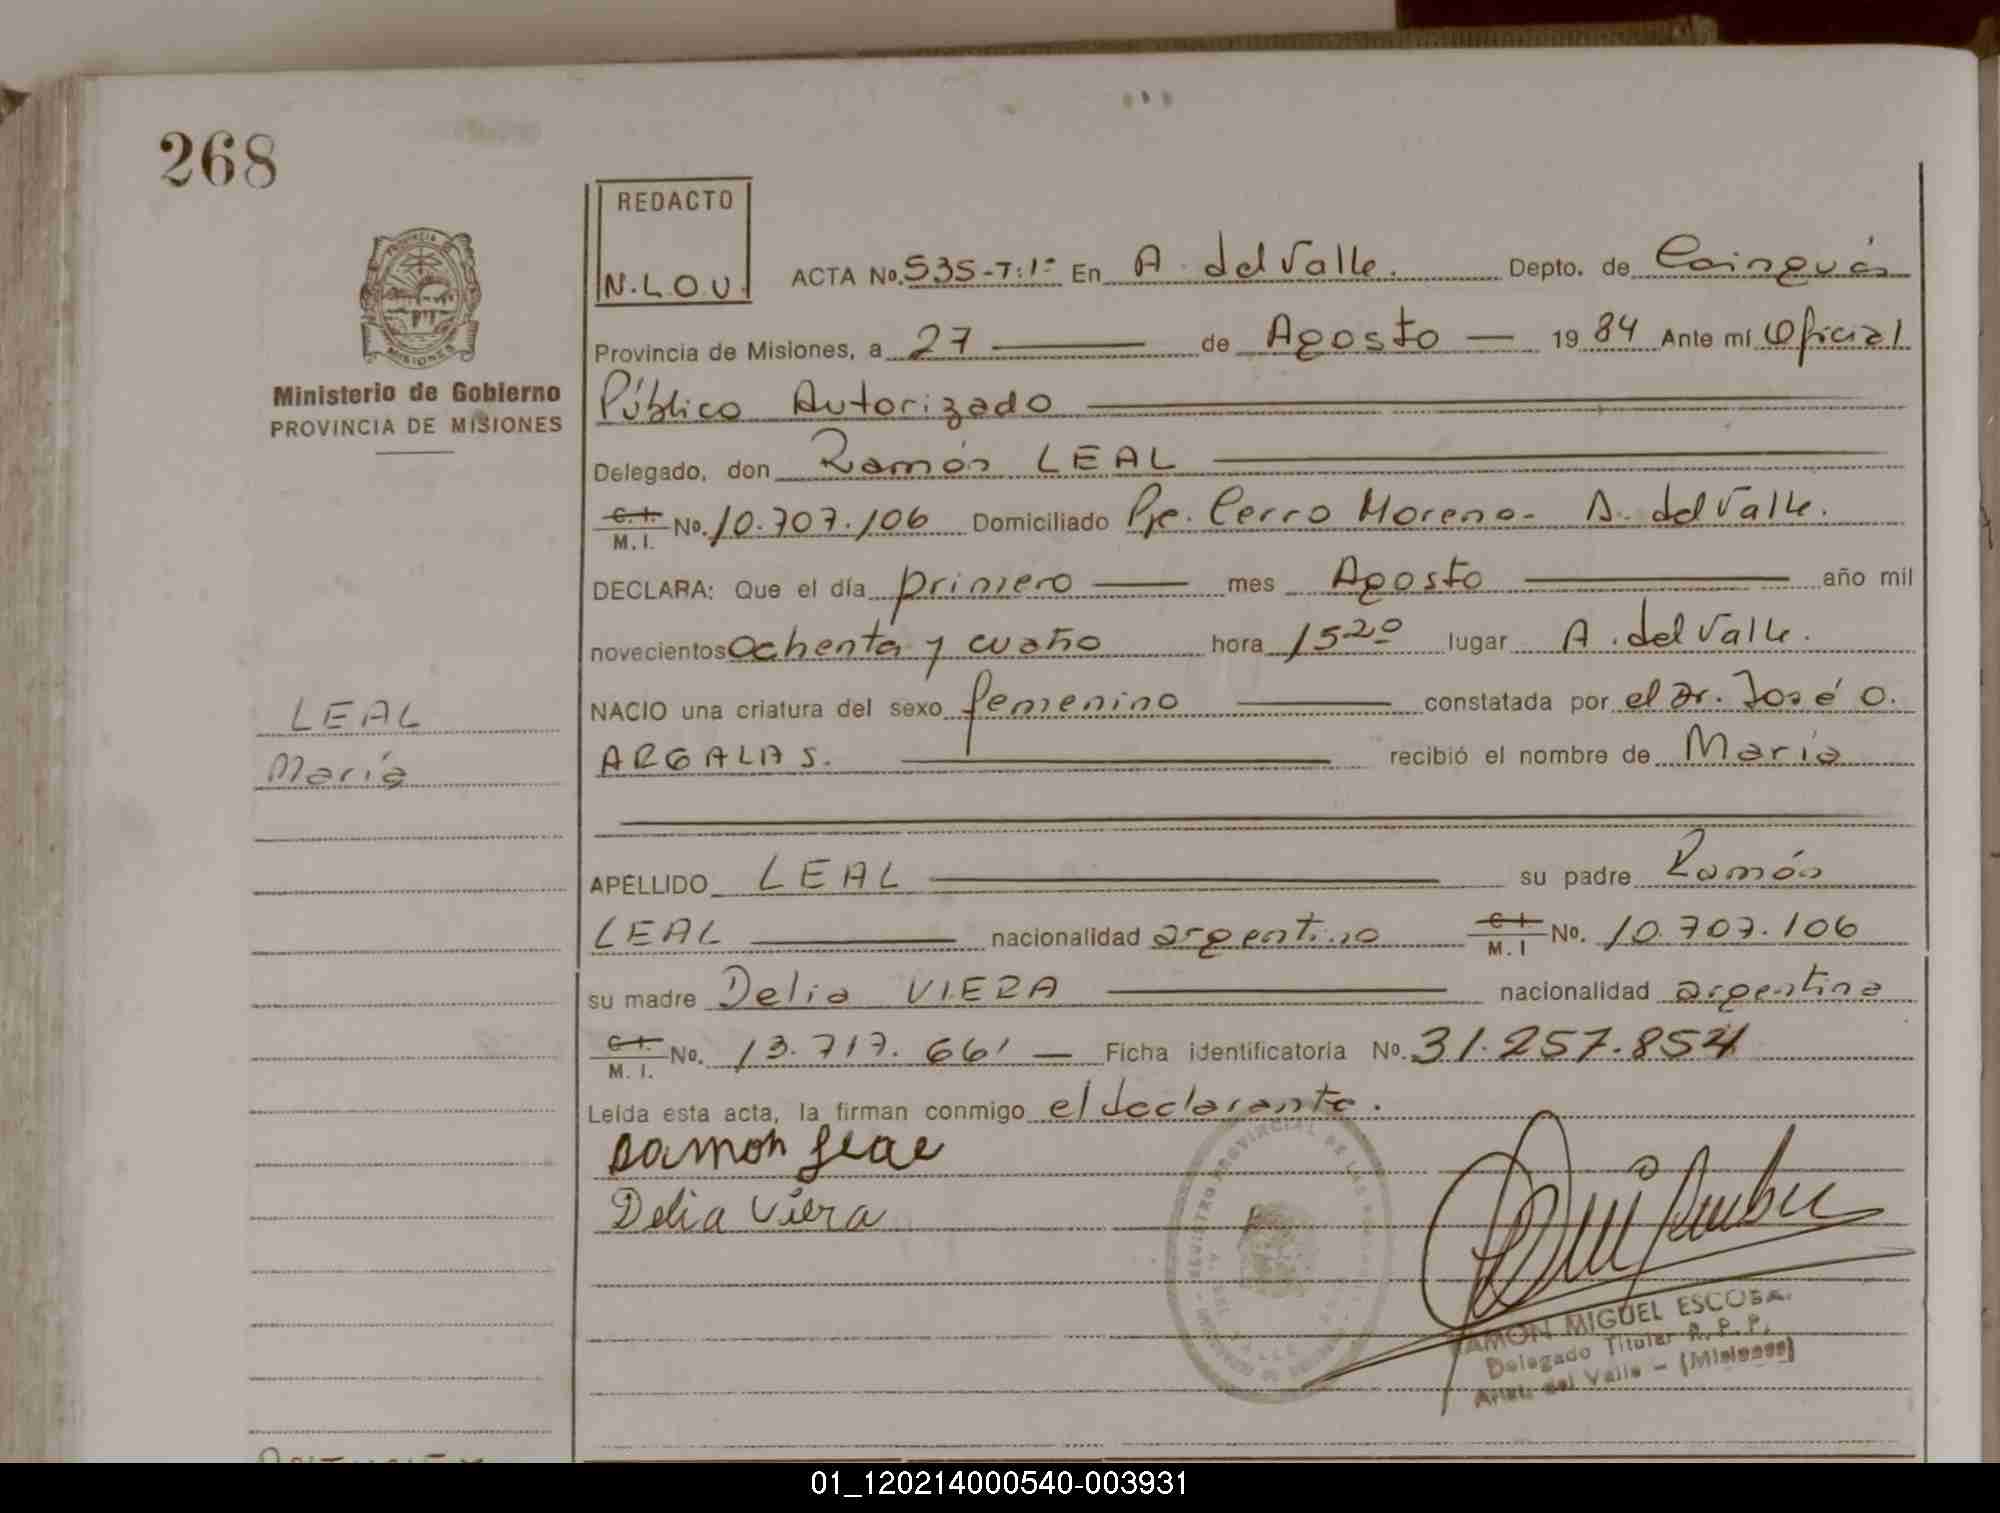 268
REDACTO
N.L.O.V.
ACTA No. 535-T:1º En A. del Valle. Depto. de Cainguás
Provincia de Misiones, a 27 de Agosto 1984 Ante mí Oficial
Ministerio de Gobierno
PROVINCIA DE MISIONES
Público Autorizado
Delegado, don Ramón LEAL
C. I. M. I. No. 10.707.106 Domiciliado Pje. Cerro Moreno- A. del Valle.
DECLARA: Que el día primero mes Agosto año mil
novecientos ochenta y cuatro hora 15 20 lugar A. del Valle.
NACIO una criatura del sexo femenino constatada por el Dr. José O.
ARGALAS. recibió el nombre de María
LEAL
María
APELLIDO LEAL su padre Ramón
LEAL nacionalidad argentino C I M. I No. 10.707.106
su madre Delia VIERA nacionalidad argentina
C I. M. I. No. 13.717.661 Ficha identificatoria No. 31.257.854
Leída esta acta, la firman conmigo el declarante.
Ramon Leal
Delia Viera
RAMON MIGUEL ESCOBA
Delegado Titular R. P. P.
Arist. del Valle - (Misiones)
01_120214000540-003931